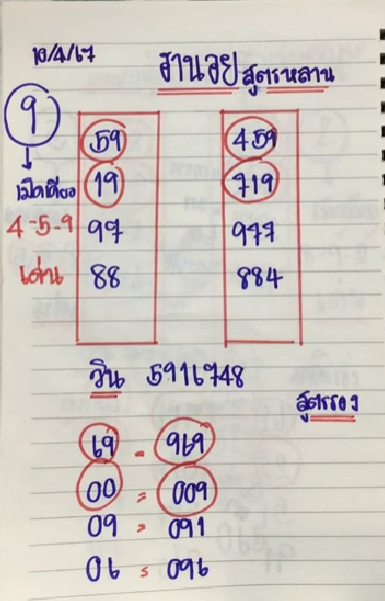 10/4/67
ฮานอย สูตรหลาน
9
59 459
เม็ดเดียว 19 719
4-5-9 97 977
เด่น 88 884
วิน 5916748
สูตรรอง
69 = 969
00 = 009
09 = 091
06 = 096